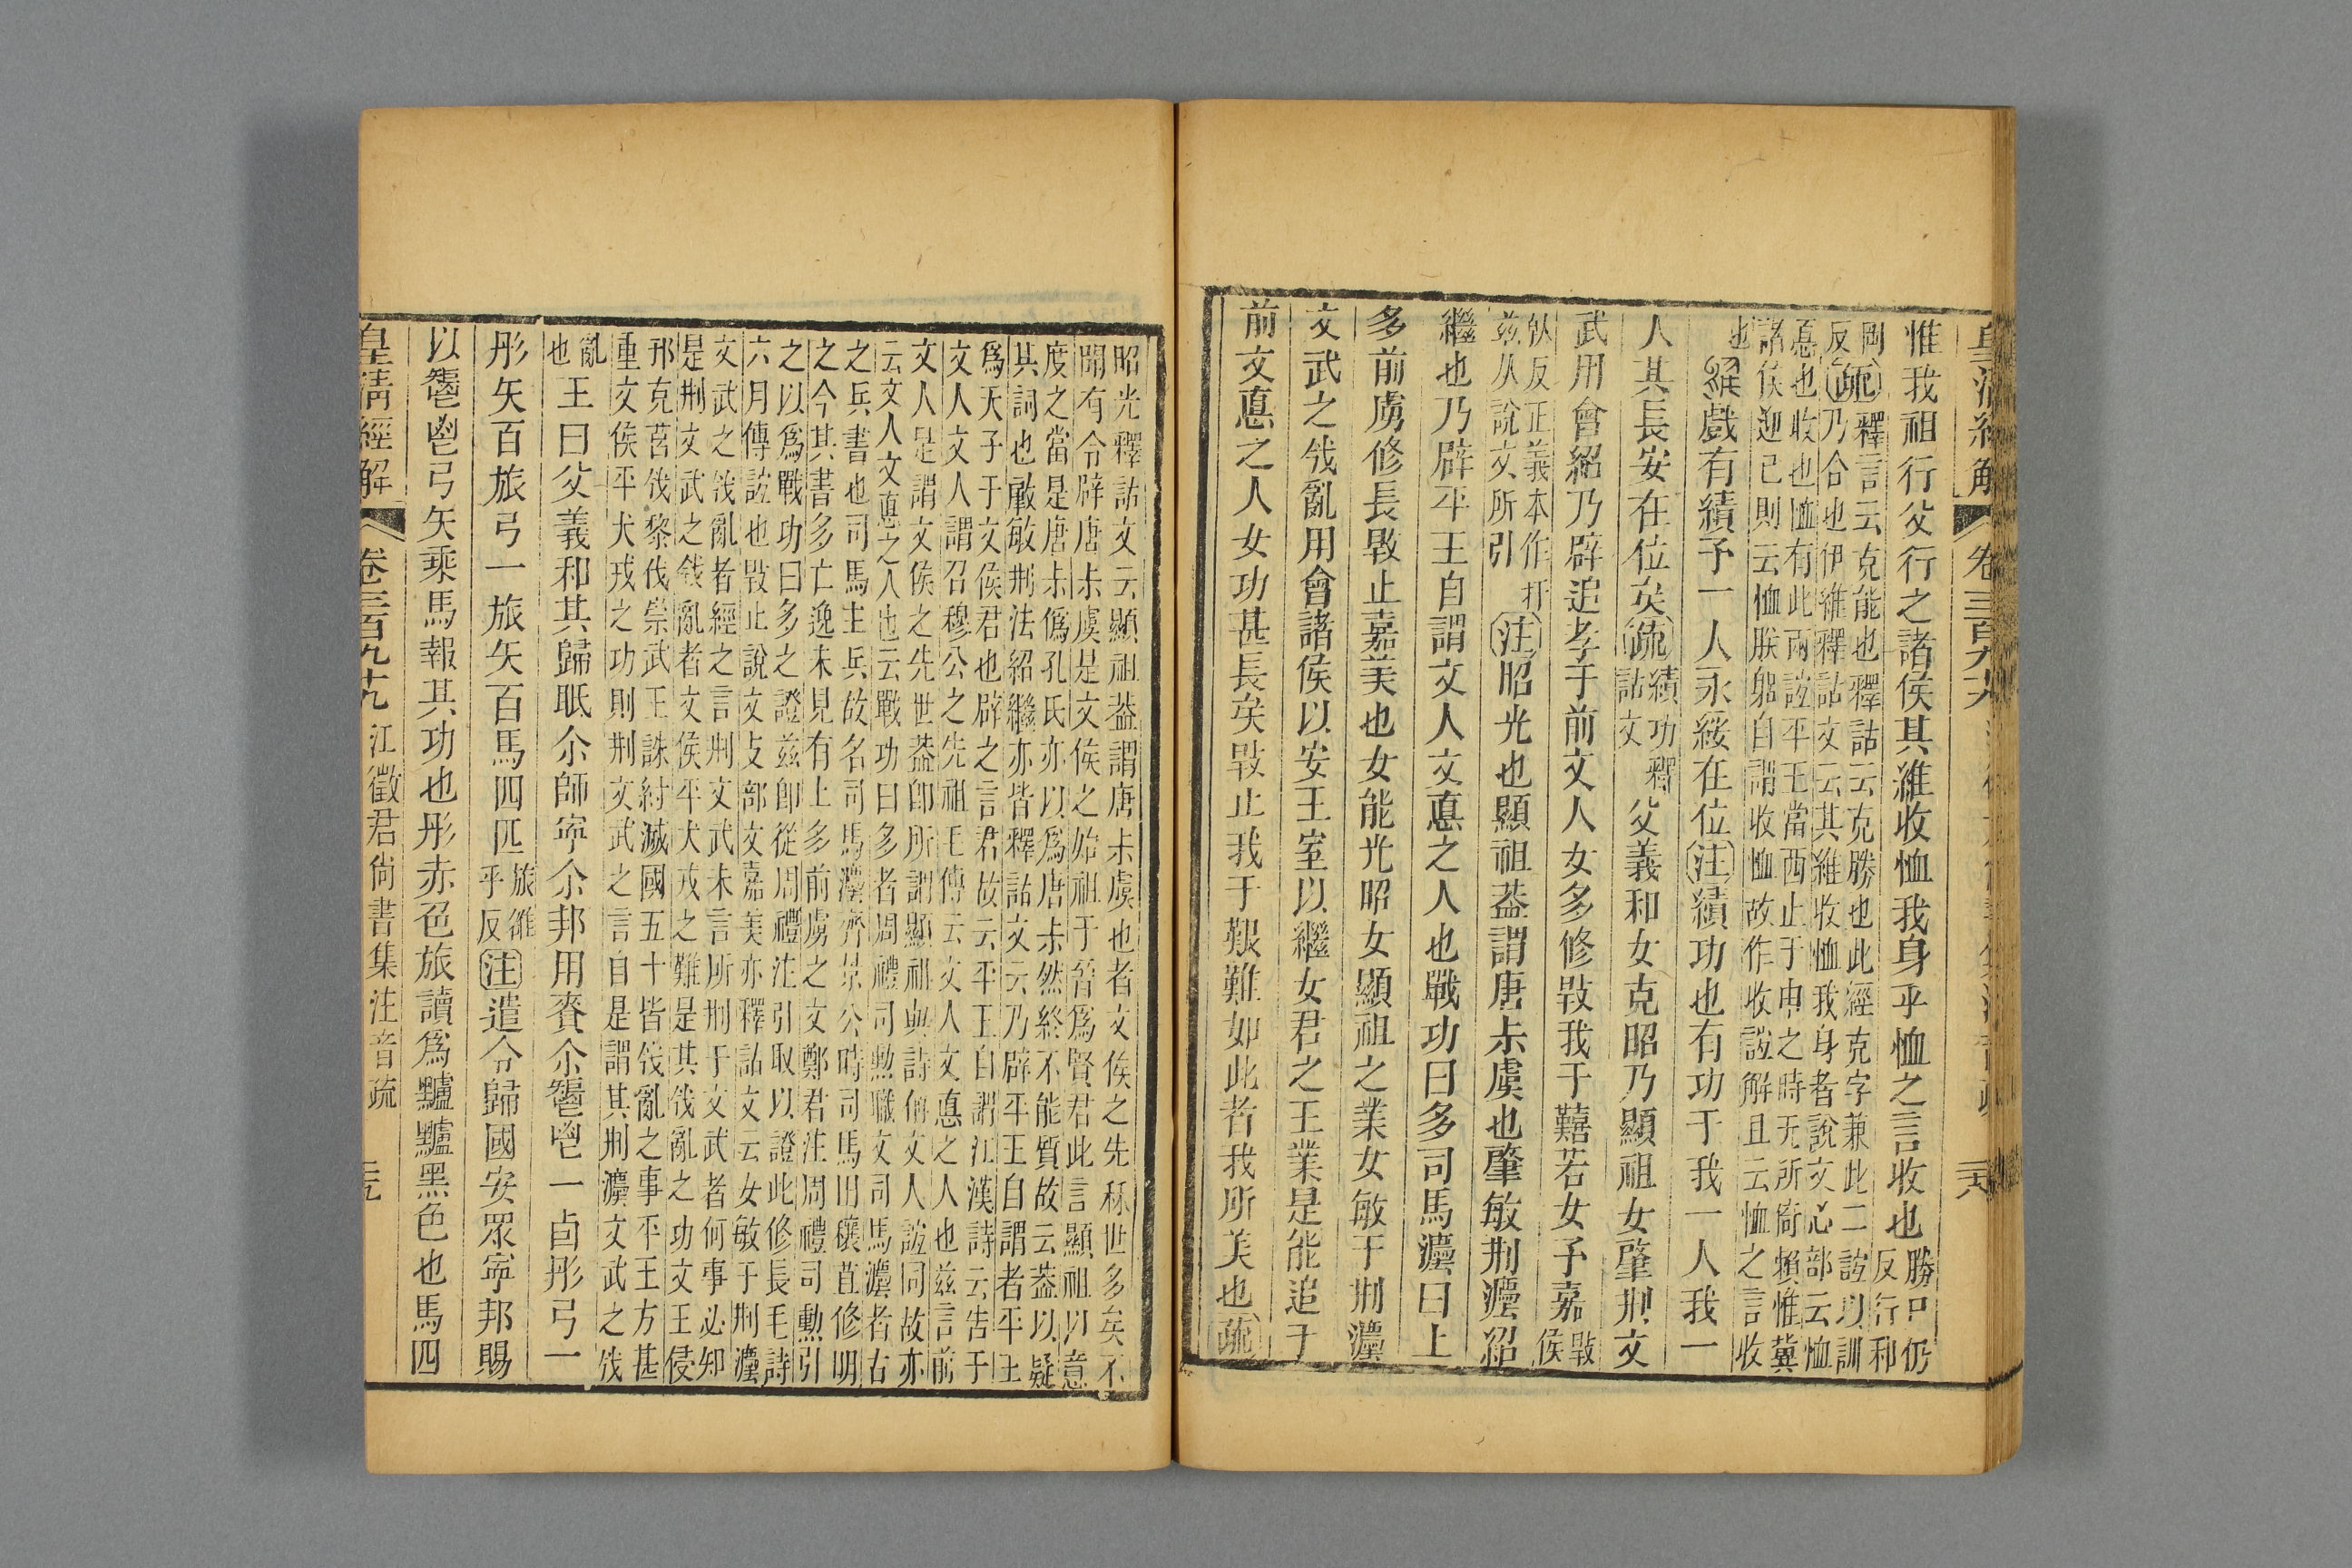 皇清經解 卷三百九十九
惟我祖行父行之諸侯其維收恤我身乎恤之言收也 勝尸仍反行和
剛反疏釋言云克能也釋詁云克勝也此經克字兼此二誼以訓
乃合也伊維釋詁文云其維收恤我身者說文心部云恤
惪也收也恤有此兩誼平王當西止于申之時无所倚賴惟冀
諸侯迎己則云恤朕躬自謂收恤故作收誼解且云恤之言收
也繄戲有績予一人永綏在位注績功也有功于我一人我一
人其長安在位矣疏績功釋詁文父義和女克昭乃顯祖女肈荆文
武用會紹乃辟追孝于前文人女多修㪁我于囏若女予嘉㪁侯
伙反正義本作扞茲从說文所引注昭光也顯祖葢謂唐尗虞也肈敏荆灋紹
繼也乃辟平王自謂文人文悳之人也戰功曰多司馬灋曰上
多前虜修長㪁止嘉美也女能光昭女顯祖之業女敏于荆灋
文武之伐亂用會諸侯以安王室以繼女君之王業是能追于
前文悳之人女功甚長矣㪁止我于艱難如此者我所美也疏
昭光釋詁文云顯祖葢謂唐尗虞也者文侯之先秝世多矣不
聞有令辟唐尗虞是文侯之始祖于晉爲賢君此言顯祖以意
度之當是唐尗僞孔氏亦以爲唐尗然終不能質故云葢以疑
其詞也敏荆法紹繼亦皆釋詁文云乃辟平王自謂者平王
爲天子于文侯君也辟之言君故云平王自謂江漢詩云告于
文人文人謂召穆公之先祖毛傳云文人文悳之人也茲言前
文人是謂文侯之先世葢卽所謂顯祖與詩偁文人誼同故亦
云文人文悳之人也云戰功曰多者周禮司勳職文司馬灋者古
之兵書也司馬主兵故名司馬灋齊景公時司馬田穰苴修明
之今其書多亡逸未見有上多前虜之文鄭君注周禮司勳引
之以爲戰功曰多之證茲卽從周禮注引取以證此修長毛詩
六月傳誼也㪁止說文攴部文嘉美亦釋詁文云女敏于荆灋
文武之伐亂者經之言荆文武未言所荆于文武者何事必知
是荆文武之伐亂者文侯平犬戎之難是其伐亂之功文王侵
邘克莒伐黎伐崇武王誅紂滅國五十皆伐亂之事平王方甚
重文侯平犬戎之功則荆文武之言自是謂其荆灋文武之伐
亂也王曰父義和其歸眂尒師寍尒邦用賚尒䰜鬯一卣彤弓一
彤矢百旅弓一旅矢百馬四匹 旅雒乎反 注遣令歸國安眾寍邦賜
以䰜鬯弓矢乘馬報其功也彤赤色旅讀爲黸黸黑色也馬四
皇清經解 卷三百九十九 江徵君尙書集注音疏